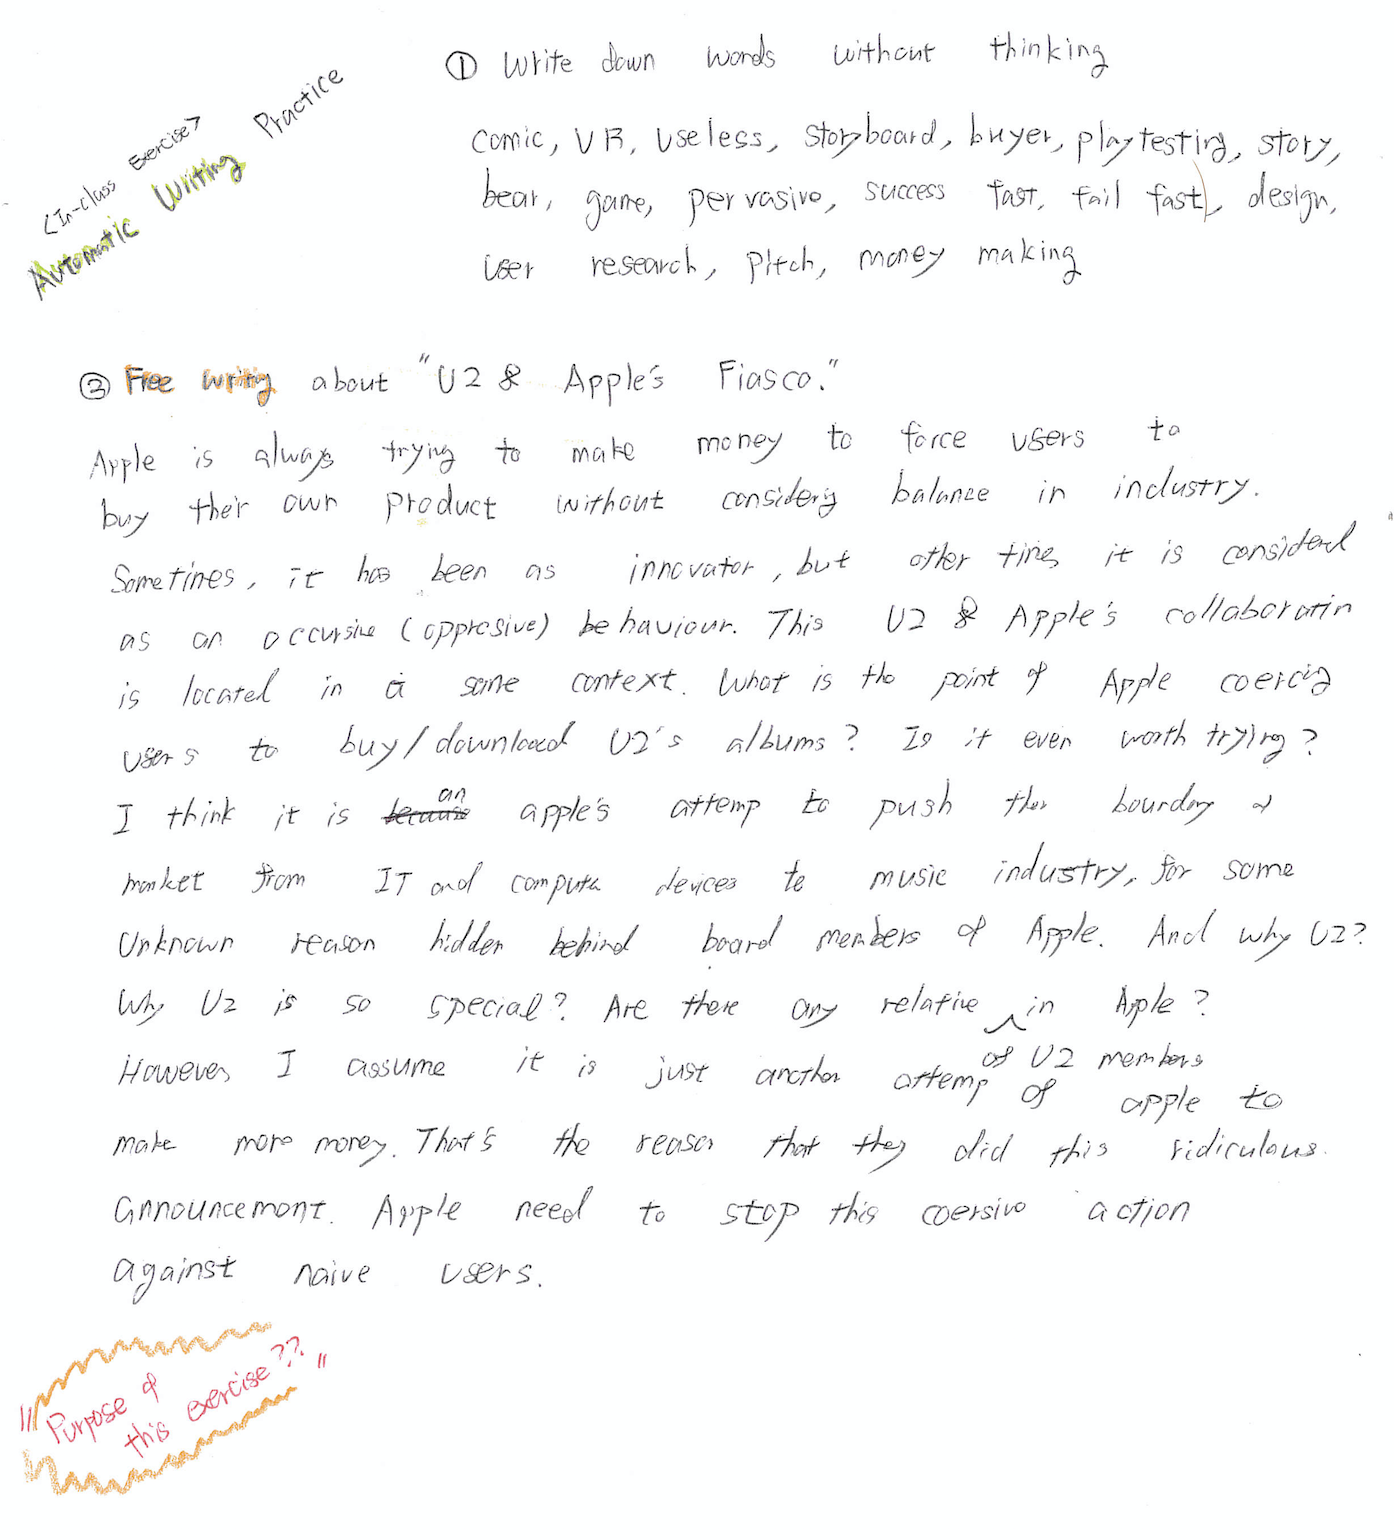 <In-class Exercise>
Automatic Writing Practice
① Write down words without thinking
comic, VR, useless, storyboard, buyer, playtesting, story,
bear, game, pervasive, success fast, fail fast, design,
user research, pitch, money making
② Free writing about "U2 & Apple's Fiasco."
Apple is always trying to make money to force users to
buy their own product without considering balance in industry.
Sometimes, it has been as innovator, but other times it is considered
as an occursive (oppresive) behaviour. This U2 & Apple's collaboratin
is located in a same context. What is the point of Apple coercing
users to buy/download U2's albums? Is it even worth trying?
I think it is because an apple's attemp to push their boundary of
market from IT and computer devices to music industry, for some
unknown reason hidden behind board members of Apple. And why U2?
Why U2 is so special? Are there any relative in Apple?
of U2 members
However, I assume it is just another attemp of apple to
make more money. That's the reason that they did this ridiculous.
announcement. Apple need to stop this coersive action
against naive users.
"Purpose of
this exercise??"